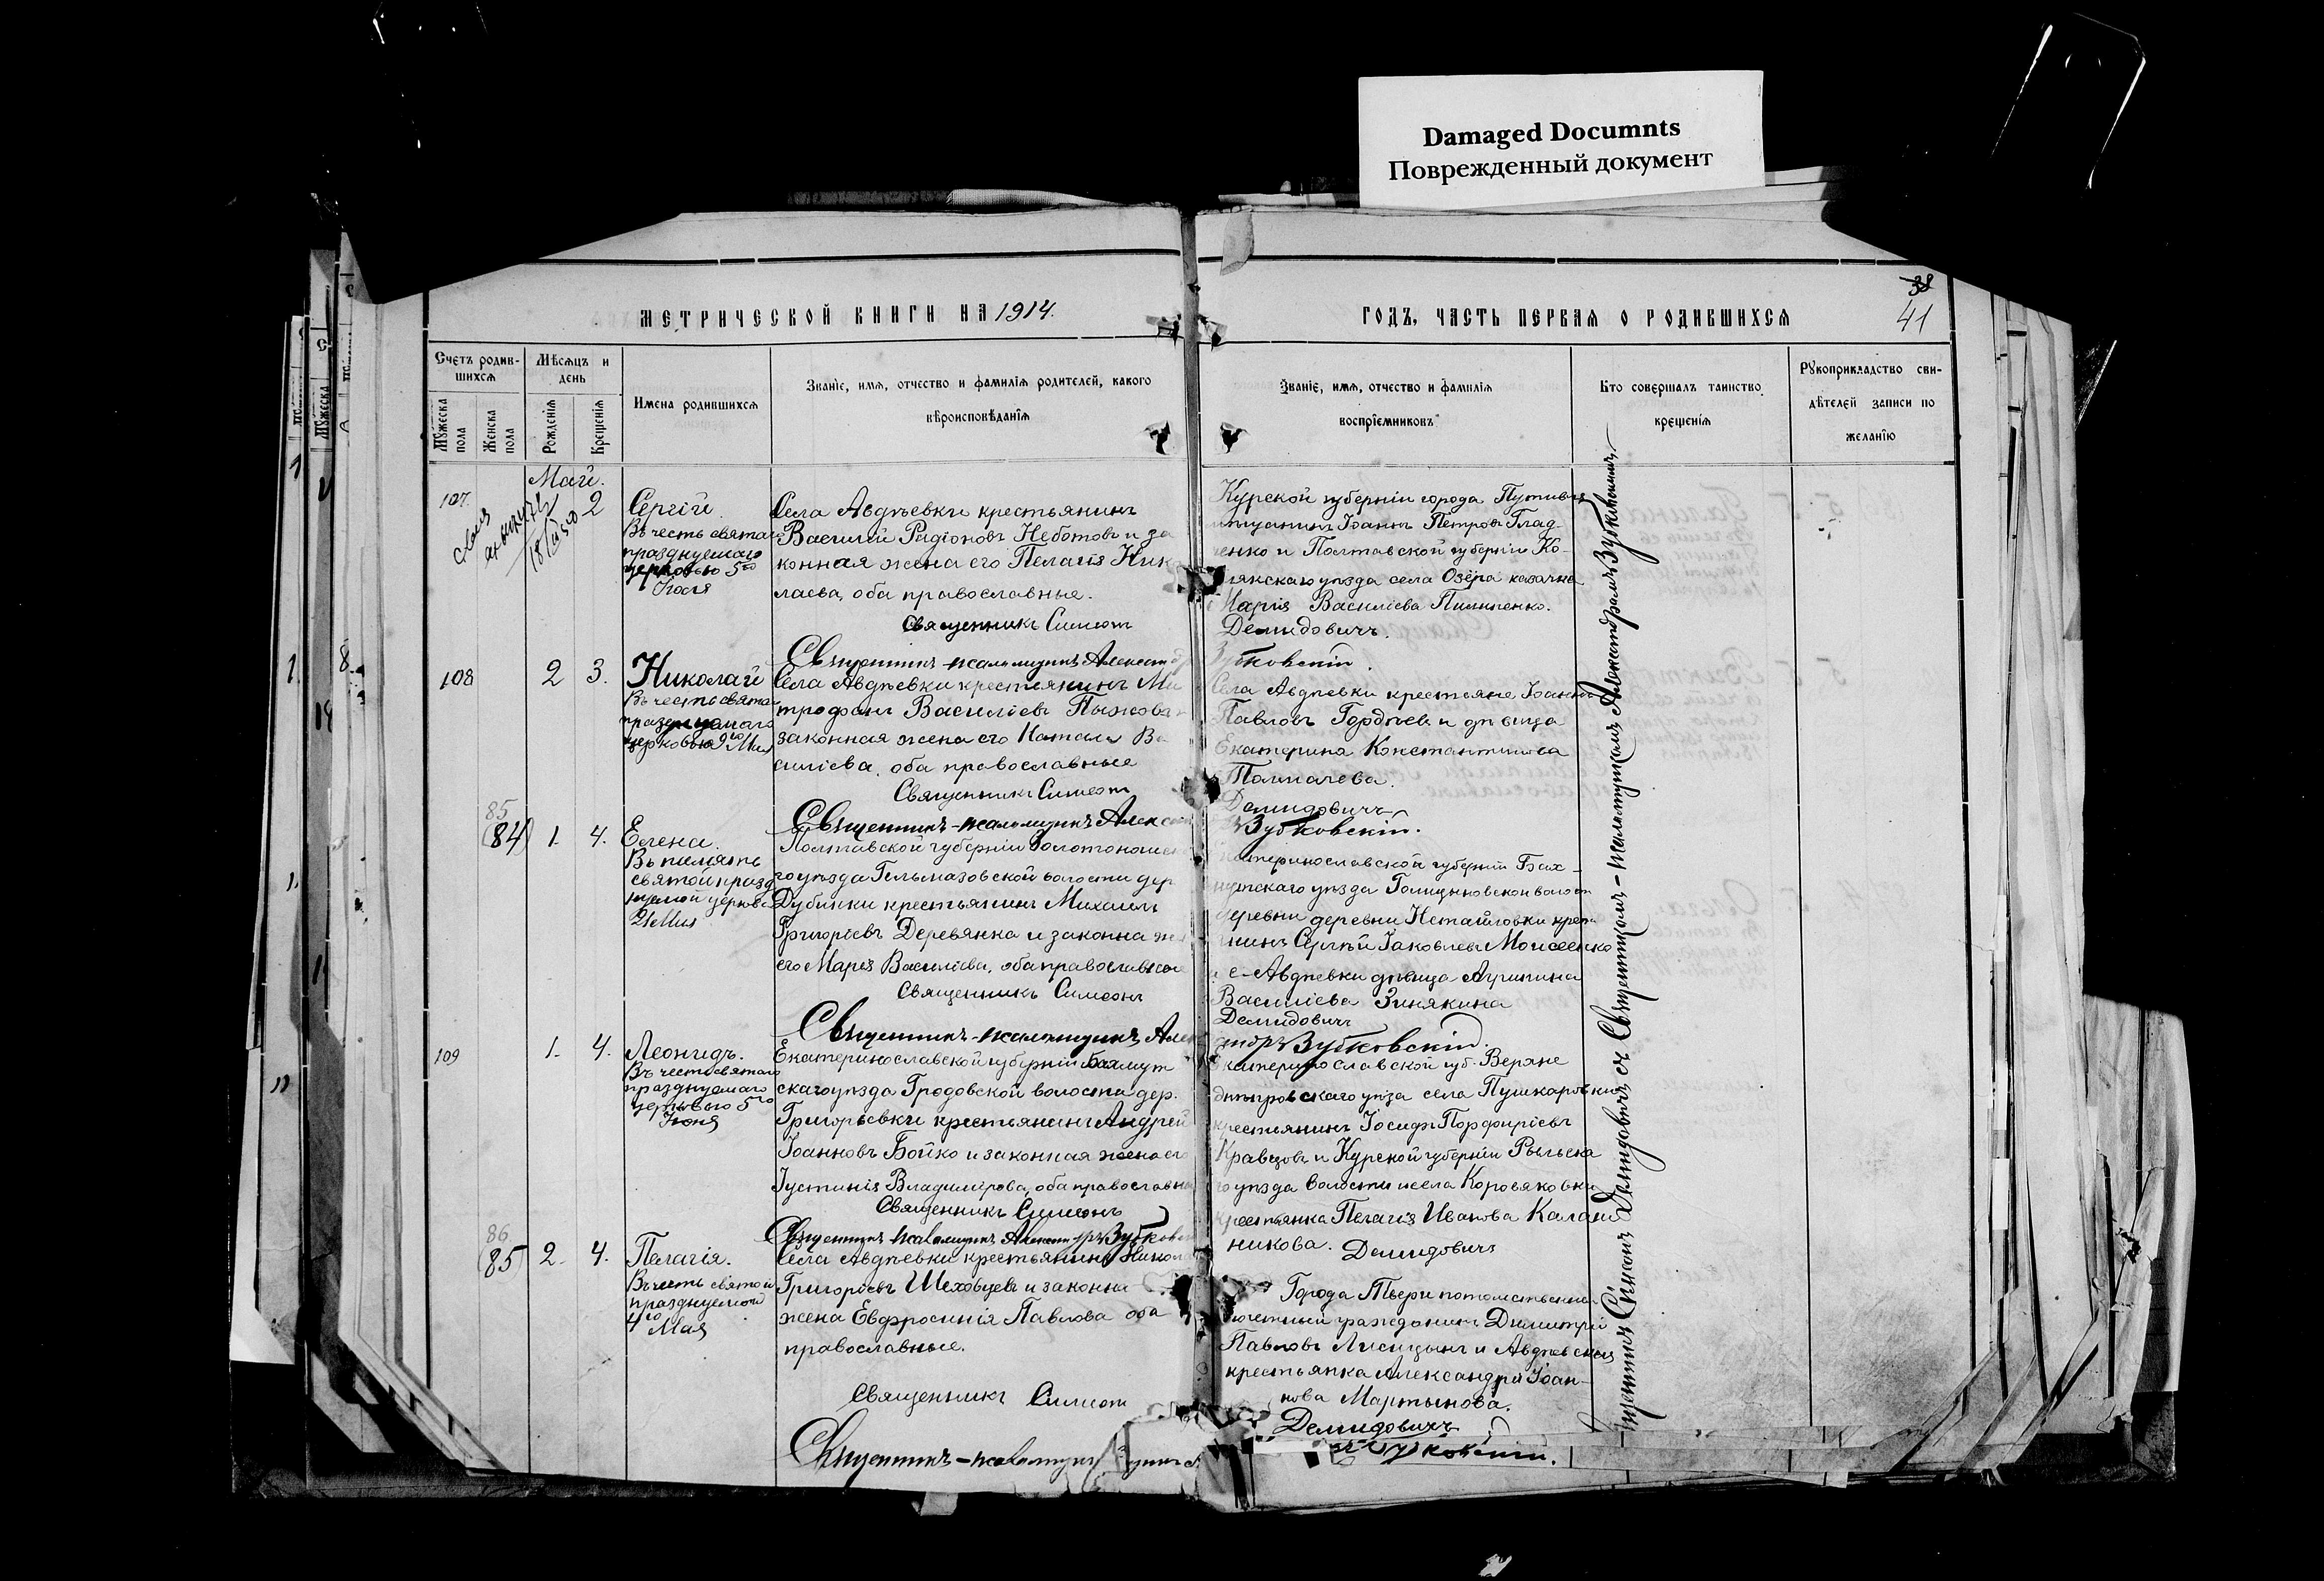 Damaged Documnts
Поврежденный документ
38
41
МЕТРИЧЕСКОЙ КНИГИ НА 1914.
ГОДЪ, ЧАСТЬ ПЕРВАЯ О РОДИВШИХСЯ
Счетъ родив-
шихся
Мѣсяцъ и
день
Мужеска
пола
Женска
пола
Рожденія
Крещенія
Имена родившихся
Званіе, имя, отчество и фамилія родителей, какого
вѣроисповѣданія
Званіе, имя, отчество и фамилія
воспріемниковъ
Кто совершалъ таинство
крещенія
Рукоприкладство сви-
дѣтелей записи по
желанію
Май.
107
2
Сергій
Въ честь святаго
празднуемаго
церковью 5го
Села Авдѣевки крестьянинъ
Василий Радіоновъ Неботовъ и за
конная жена его Пелагія Ник
лаева, оба православные.
Священникъ Симеон
Священникъ-псаломщикъ Александ
Курской губерніи города Путивля
Іоаннъ Петровъ Глад-
ченко и Полтавской губерніи Ко-
уѣзда села Озера казачка
Марія Василіева Пилипенко.
Демидовичъ.
Зубковскій.
108
2
3.
Николай
Въ честь свята
празднуемаго
церковью 9го Мая
Села Авдѣевки крестьянинъ Ми
трофанъ Василіевъ Пыжов
законная жена его Наталя Ва
силіева, оба православные
Священникъ Симеон
Священникъ-псаломщикъ Алекса
Села Авдѣевки крестьяне Іоаннъ
Павловъ Гордѣевъ и дѣвица
Екатерина Константинова
Толмачева.
Демидовичъ
Зубковскій.
85
(84)
1.
4.
Елена.
Въ память
святой празд
нуемой церковью
21 Мая
Полтавской губерніи Золотоношск
го уѣзда Гельмазовской волости дер
Дубинки крестьянинъ Михаилъ
Григоріевъ Деревянка и законна же
его Марія Василіева, оба православные
Священникъ Симеонъ
Священникъ-псаломщикъ Алек
Екатеринославской губерніи Бах-
мутскаго уѣзда Голицыновской волост
деревни деревни Неткайловки крест
нинъ Сергѣй Іаковлевъ Моисеенко
и с-Авдѣевки дѣвица Агрипина
Василіева Зинякина
Демидовичъ
Зубковскій.
109
1.
4.
Леонидъ.
Въ честь святаго
празднуемаго
церковью 5го
Іюня
Екатеринославской губерніи Бахмут
скаго уѣзда Гродовской волости дер.
Григорьевки крестьянинъ Андрей
Іоанновъ Бойко и законная жена его
Іустинія Владимірова, оба православны
Священникъ Симеонъ
Священникъ-псаломщикъ Александръ Зубковск
Екатеринославской губ. Верхне
днѣпровскаго уѣзда села Пушкаровки
крестьянинъ Іосифъ Порфиріевъ
Кравцовъ и Курской губерніи Рыльска
го уѣзда волости и села Коровяковки
крестьянка Пелагія Иванова Калаш
никова. Демидовичъ
86
(85)
2.
4.
Пелагія.
Въ честь святой
празднуемой
4го Мая
Села Авдѣевки крестьянинъ Никол
Григоріевъ Шеховцевъ и законна
жена Евфросинія Павлова оба
православные.
Священникъ Симеон
Священникъ-псаломщикъ
Города Твери потомственный
почетный гражданинъ Димитрій
Павловъ Лисицынъ и Авдѣевская
крестьянка Александра Іоан-
нова Мартынова.
Демидовичъ
Священникъ Симеонъ Демидовичъ съ Священникомъ-псаломщикомъ Александромъ Зубковскимъ